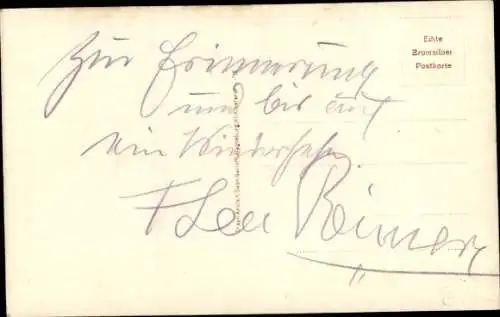 Echte
Bromsilber
Postkarte
Zur Erinnerung
und bis auf
ein Wiedersehn.